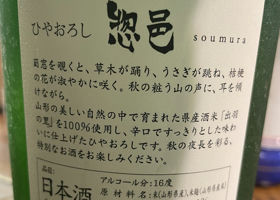 ひやおろし 惣邑 soumura
菊窓を覗くと、草木が踊り、うさぎが跳ね、桔梗
の花が淑やかに咲く。秋の粧う山の声に、耳を傾
けながら。
山形の美しい自然の中で育まれた県産酒米「出羽
の里」を100%使用し、辛口ですっきりとした味わ
いに仕上げたひやおろしです。秋の夜長を彩る、
特別なお酒をお楽しみください。
品目:
日本酒
アルコール分:16度
原材料名:米(山形県産)、米麹(山形県産米)